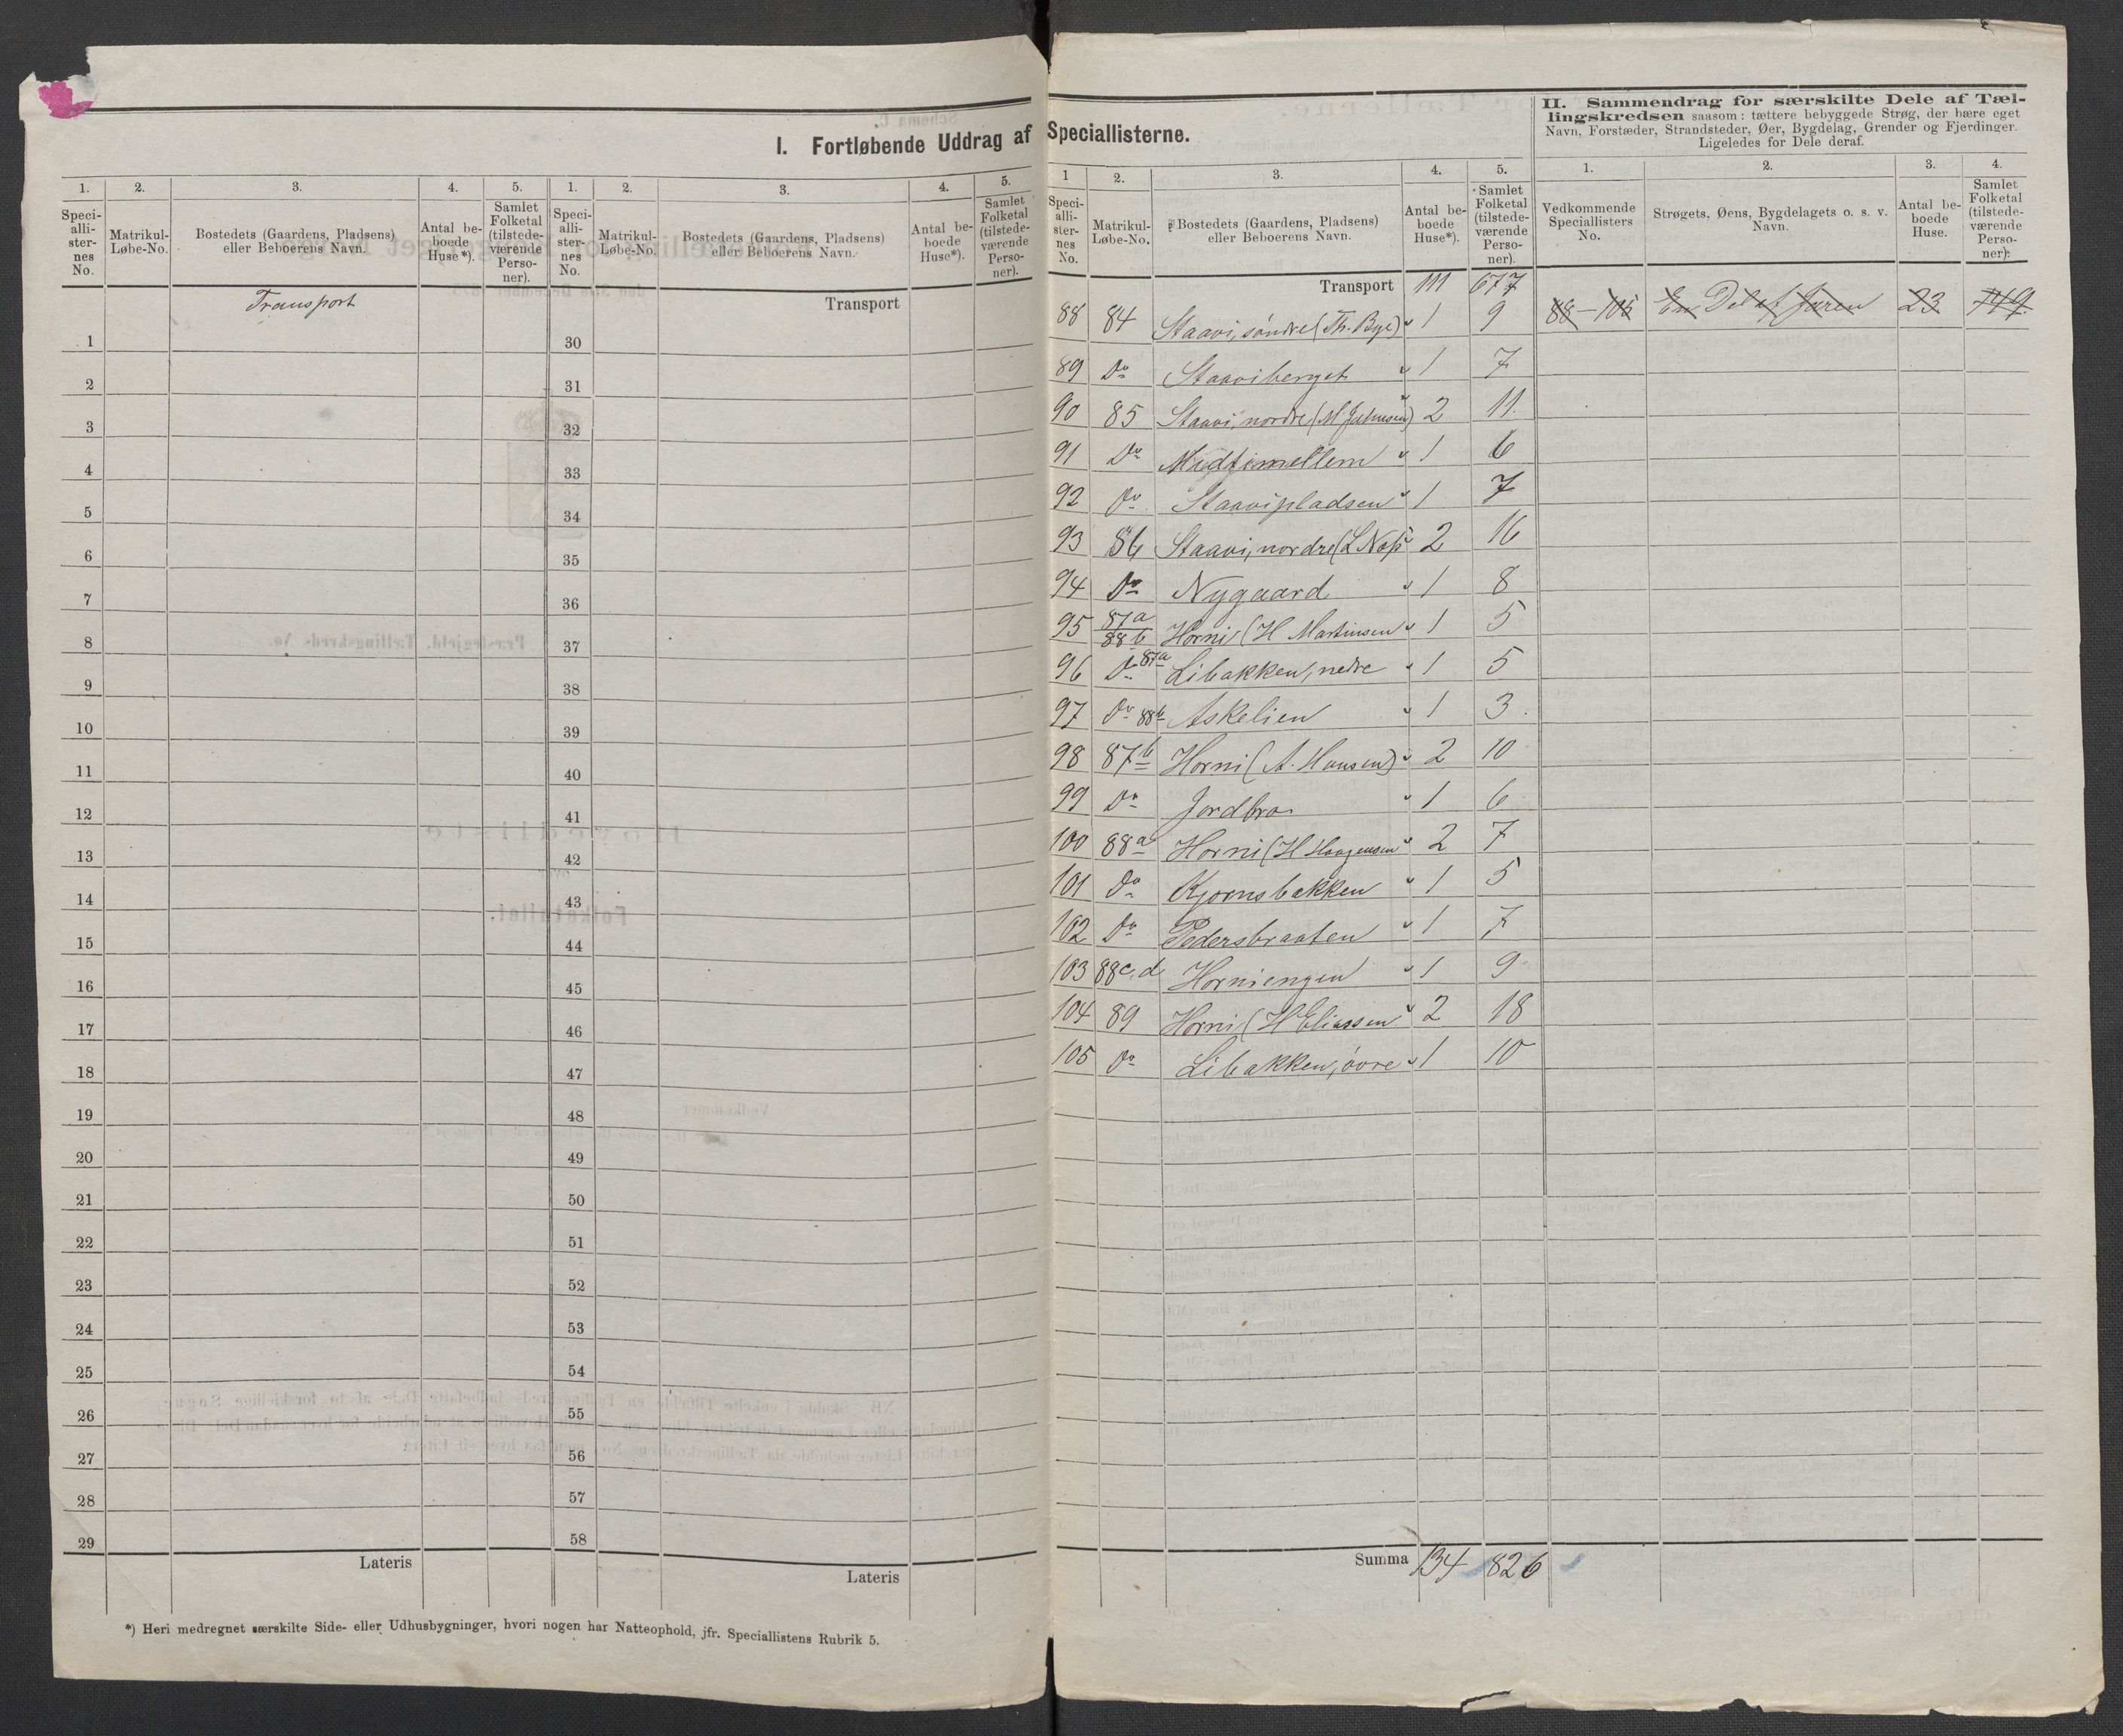 I. Fortløbende Uddrag af Speciallisterne.
II. Sammendrag for særskilte Dele af Tæl-
lingskredsen saasom: tættere bebyggede Strøg, der bære eget
Navn, Forstæder, Strandsteder, Øer, Bygdelag, Grender og Fjerdinger.
Ligeledes for Dele deraf.
1. 2. 3. 4. 5. 1. 2. 3. 4. 5.
Speci-alli-ster-nes No. Matrikul-Løbe-No. Bostedets (Gaardens, Pladsens) eller Beboerens Navn. Antal be-boede Huse*). Samlet Folketal (tilstede-værende Perso-ner).
Speci-alli-ster-nes No. Matrikul-Løbe-No. Bostedets (Gaardens, Pladsens) eller Beboerens Navn. Antal be-boede Huse*). Samlet Folketal (tilstede-værende Perso-ner).
Transport Transport
1 30
2 31
3 32
4 33
5 34
6 35
7 36
8 37
9 38
10 39
11 40
12 41
13 42
14 43
15 44
16 45
17 46
18 47
19 48
20 49
21 50
22 51
23 52
24 53
25 54
26 55
27 56
28 57
29 58
Lateris Lateris
*) Heri medregnet særskilte Side- eller Udhusbygninger, hvori nogen har Natteophold, jfr. Speciallistens Rubrik 5.
1 2. 3. 4. 5. 1. 2. 3. 4.
Speci-alli-ster-nes No. Matrikul-Løbe-No. Bostedets (Gaardens, Pladsens) eller Beboerens Navn. Antal be-boede Huse*). Samlet Folketal (tilstede-værende Perso-ner).
Vedkommende Speciallisters No. Strøgets, Øens, Bygdelagets o. s. v. Navn. Antal be-boede Huse. Samlet Folketal (tilstede-værende Perso-ner).
Transport 111 677
88 84 Staavi, söndre (Th. Bye) 1 9 88-105 En Del af Jaren 23 149
89 Do Staaviberget 1 7
90 85 Staavi, nordre (M 2 11
91 Do Midtimellem 1 6
92 Do Staavipladsen 1 7
93 86 Staavi, nordre (L 2 16
94 Do Nygaard 1 8
95 87a 88b Horni (H Martinsen 1 5
96 Do 87a Libakken, nedre 1 5
97 Do 88b Askelien 1 3
98 87b Horni (A. Hansen) 2 10
99 Do Jordbro 1 6
100 88a Horni (H Haagensen 2 7
101 Do Kjørnsbakken 1 5
102 Do Pedersbraaten 1 7
103 88c,d Horniengen 1 9
104 89 Horni (H Eliassen 2 18
105 Do Libakken, óvre 1 10
Summa 134 826